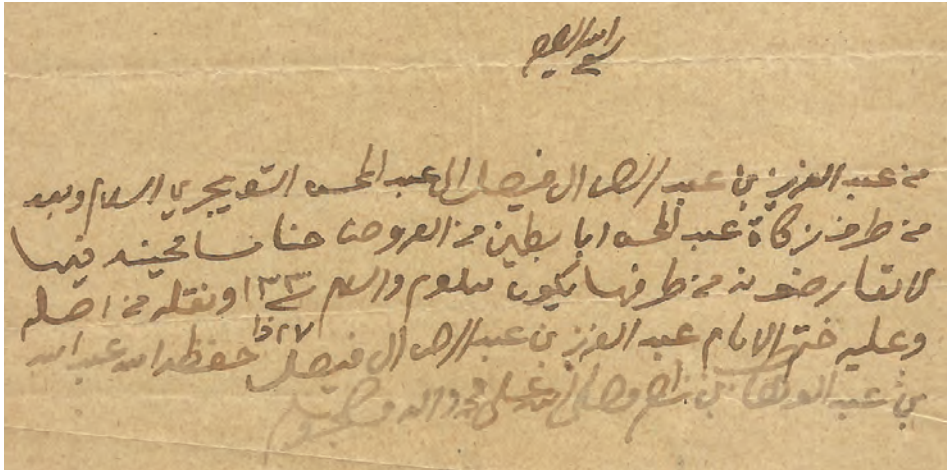 بسم الله الرحمن الرحيم
من عبد العزيز بن عبد الرحمن ال فيصل الى عبد المحسن التويجري السلام وبعد
من طرف زكاة عبد المحسن ابا بطين من العروض حنا مسامحينه فيها
لا تعارضونه من طرفها يكون معلوم والسلام ١٣٣ ونقله من اصله
وعليه ختم الامام عبد العزيز بن عبد الرحمن ال فيصل حفظه الله عبد الله
٢٧ ذا
بن عبد الوهاب بن زاحم وصلى الله على محمد واله وصحبه وسلم